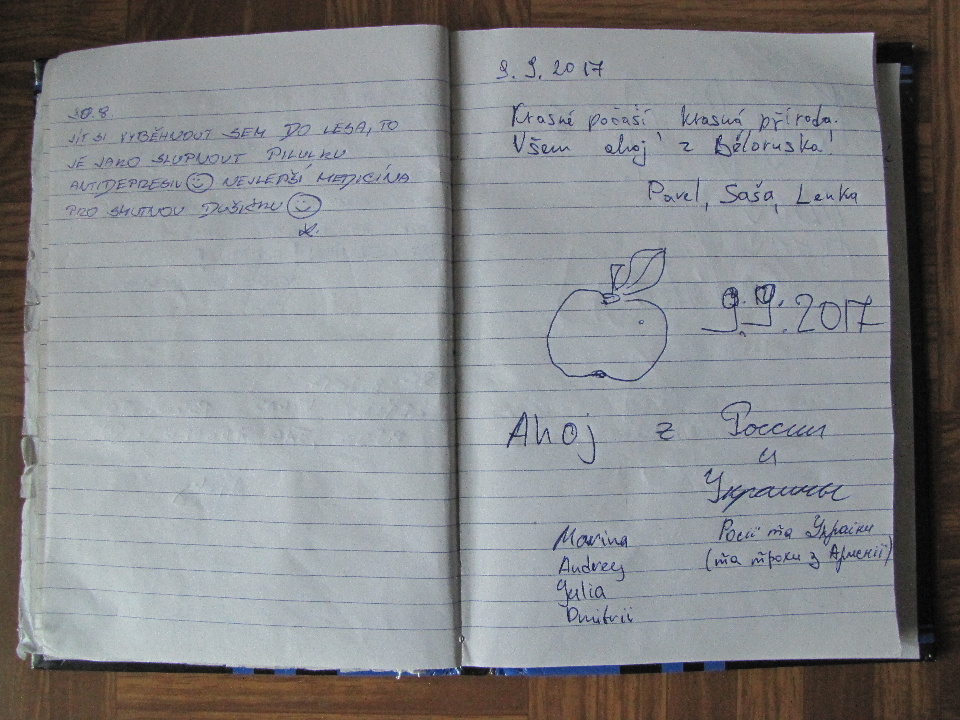 30.8.
JÍT SI VYBĚHNOUT SEM DO LESA, TO
JE JAKO SLUPNOUT PILULKU
ANTIDEPRESIV NEJLEPŠÍ MEDICÍNA
PRO SMUTNOU DUŠIČKU
9. 9. 2017
Krasné počasí krasná příroda.
Všem ahoj z Běloruska!
Pavel, Saša, Lenka
9.9.2017
Ahoj z России
и
Украины
Marina
Росії та України
Andrey
(та трохи з Арменії)
Yulia
Dmitrii